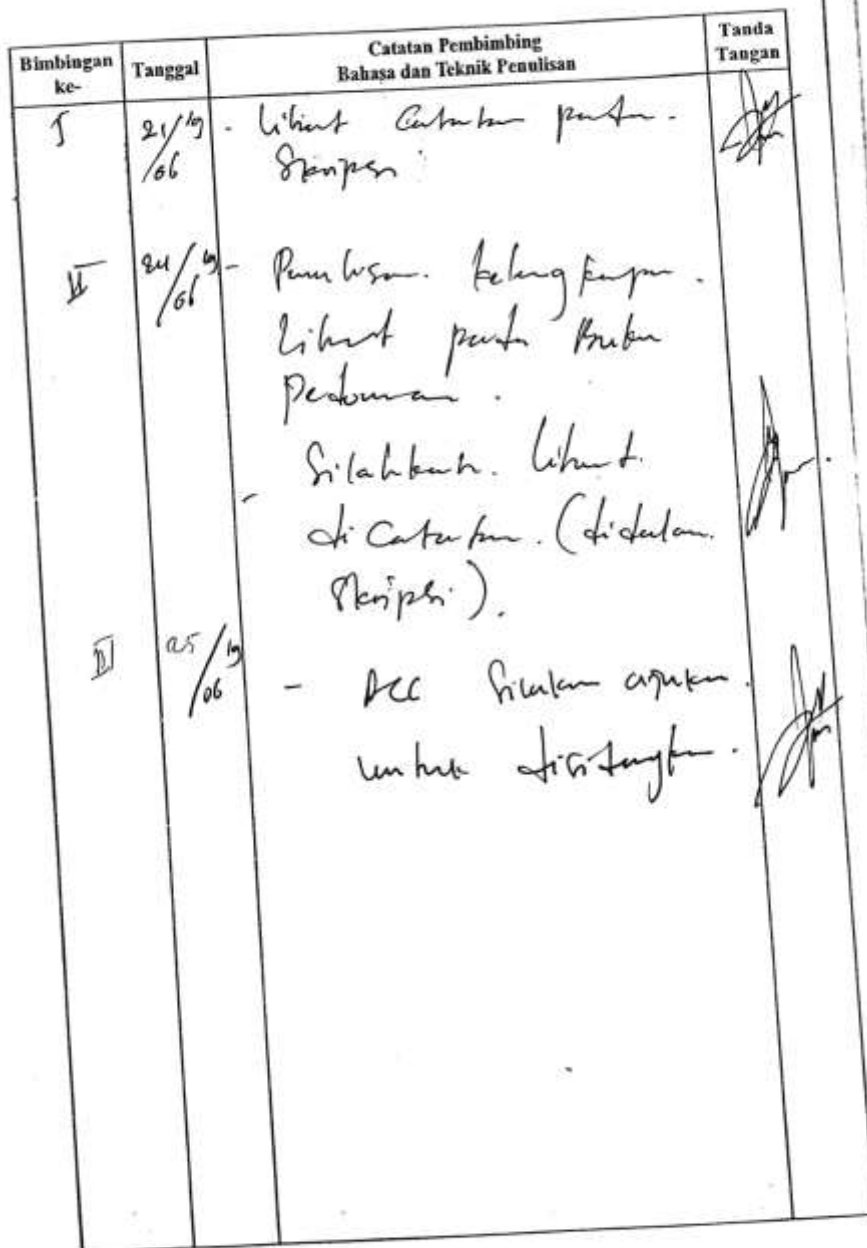 Bimbingan ke-
Tanggal
Catatan Pembimbing
Bahasa dan Teknik Penulisan
Tanda Tangan
I 21/06 19 - Lihat Catatan pada
Skripsi
II 24/06 19 - Penulisan kelengkapan.
Lihat pada Buku
Pedoman.
- Silahkan lihat
di Catatan. (didalam
Skripsi).
III 25/06 19 - ACC Silakan ajukan
untuk disidangkan.